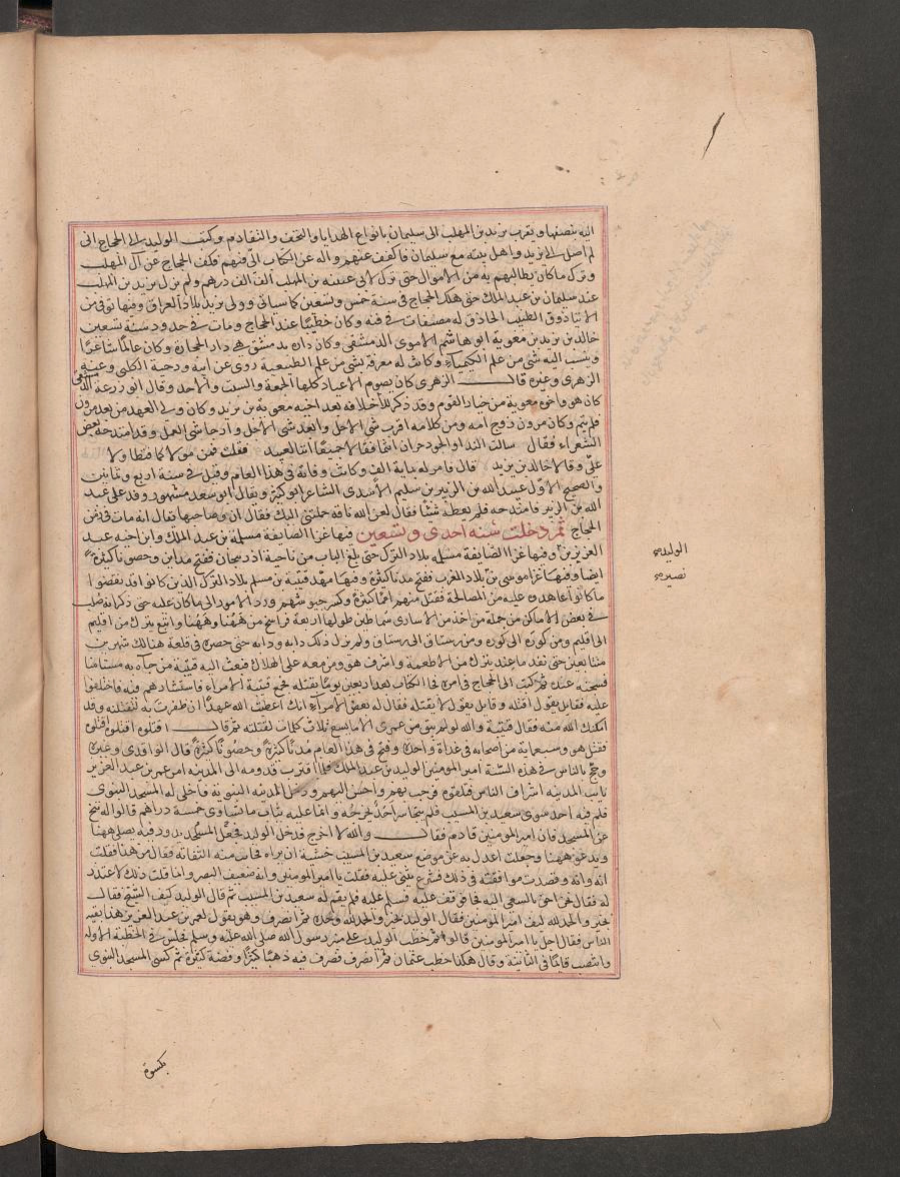 اليه بنصفها وتقرب يزيد بن المهلب الى سليمان بانواع الهدايا والتحف والتقادم وكتب الوليد الى الحجاج اني
لم اصل الى يزيد واهل بيته مع سليمان فاكفف عنهم واله عن الكتاب الي فيهم فكف الحجاج عن آل المهلب
وترك ما كان يطالبهم به من الاموال حتى ترك لابي عيينة بن المهلب الف الف درهم ولم يزل يزيد بن المهلب
عند سليمان بن عبد الملك حتى هلك الحجاج في سنة خمس وتسعين كما سياتي وولى يزيد بلاد العراق وفيها توفي من
الاعيان تياذوق الطبيب الحاذق له مصنفات في فنه وكان حظيا عند الحجاج ومات في حدود سنة تسعين
خالد بن يزيد بن معوية ابو هاشم الاموي الدمشقي وكان داره بدمشق هي دار الحجارة وكان عالما شاعرا
وينسب اليه شي من علم الكيمياء وكانت له معرفة بشي من علم الطبيعة روى عن ابيه ودحية الكلبي وعنه
الزهري وغيره قال الزهري كان يصوم الاعياد كلها الجمعة والسبت والاحد وقال ابو زرعة الدمشقي
كان هو واخوه معوية من خيار القوم وقد ذكر للخلافة بعد اخيه معوية بن يزيد وكان ولي العهد من بعد مرون
فلم يتم وكان مرون زوج امه ومن كلامه اقرب شي الاجل وابعد شي الامل وارجا شي العمل وقد امتدحه بعض
الشعراء فقال سالت الندا والجود حران انتما فقالا جميعا اننا لعبيد فقلت فمن مولاكما فتطاولا
علي وقالا خالد بن يزيد قال فامر له بماية الف وكانت وفاته في هذا العام وقيل في سنة اربع وثمانين
والصحيح الاول عبد الله بن الزبير بن سليم الاسدي الشاعر ابو كثير ويقال ابو سعد مشهور وفد على عبد
الله بن الزبير وامتدحه فلم يعطه شيئا فقال لعن الله ناقة حملتني اليك فقال ان وصاحبها يقال انه مات في زمن
الحجاج ثم دخلت سنة احدى وتسعين فيها غزا الصايفة مسلمة بن عبد الملك وابن اخيه عبد
العزيز بن وفيها غزا الصايفة مسلمة بلاد الترك حتى بلغ الباب من ناحية اذربيجان ففتح مداين وحصونا كثيرة
ايضا وفيها غزا موسى بن بلاد المغرب ففتح مدنا كثيرة وفيها مهد قتيبة بن مسلم بلاد الترك الذين كانوا قد نقضوا
ما كانوا عاهدوه عليه من المصالحة فقتل منهم امما كثيرة وكسر جيوشهم ورد الامور الى ما كان عليه حتى ذكر انه صلب
في بعض الاماكن من جملة من اخذ من الاسارى سماطين طولهما اربعة فراسخ من ههنا وههنا واتبع نيزك من اقليم
الى اقليم ومن كورة الى كورة ومن رستاق الى رستاق ولم يزل ذلك دابه ودابه حتى حصره في قلعة هنالك شهرين
متتابعين حتى نفد ما عند نيزك من الاطعمة واشرف هو ومن معه على الهلاك فبعث اليه قتيبة من جاء به مستامنا
فسجنه عنده ثم كتب الى الحجاج في امره فجا الكتاب بعد اربعين يوما بقتله فجمع قتيبة الامراء فاستشارهم فيه فاختلفوا
عليه فقايل يقول اقتله وقايل يقول لا يقتله فقال له بعض الامراء انك اعطيت الله عهدا ان ظفرت به لتقتلنه وقد
امكنك الله منه فقال قتيبة والله لو لم يبق من عمري الا ما يسع ثلاث كلمات لقتلته ثم قال اقتلوه اقتلوه اقتلوه
فقتل هو وسبعماية من اصحابه في غداة واحدة وفتح في هذا العام مدنا كثيرة وحصونا كثيرة قال الواقدي وغيره
وحج بالناس في هذه السنة امير المومنين الوليد بن عبد الملك فلما اقترب قدومه الى المدينة امر عمر بن عبد العزيز
نايب المدينة اشراف الناس فتلقوه فرحب بهم واحسن اليهم ودخل المدينة النبوية فاخلى له المسجد النبوي
فلم يبق فيه احد سوى سعيد بن المسيب فلم يتجاسر احد يخرجه وانما عليه ثياب ما تساوي خمسة دراهم قالوا له تنح
عن المسجد فان امير المومنين قادم فقال والله لا اخرج فدخل الوليد فجعل المسجد يدور فيه يصلي ههنا
ويدعو ههنا وجعلت اعدل به عن موضع سعيد بن المسيب خشية ان يراه فحانت منه التفاتة فقال من هذا فقلت
انه وانه وقصدت موافقته في ذلك فشرع يثني عليه فقلت يا امير المومنين وانه ضعيف البصر وانما قلت ذلك لاعتذر
له فقال نحن احق بالسعي اليه فجا فوقف عليه فسلم عليه فلم يقم له سعيد بن المسيب ثم قال الوليد كيف الشيخ فقال
بخير والحمد لله كيف امير المومنين فقال الوليد بخير والحمد لله وحده ثم انصرف وهو يقول لعمر بن عبد العزيز هذا بقية
الناس فقال اجل يا امير المومنين قالوا ثم خطب الوليد على منبر رسول الله صلى الله عليه وسلم فجلس في الخطبة الاولى
وانتصب قائما في الثانية وقال هكذا خطب عثمان ثم انصرف فصرف فيه ذهبا كثيرا وفضة كثيرة ثم كسى المسجد النبوي
الوليد
نصير
بكسوة